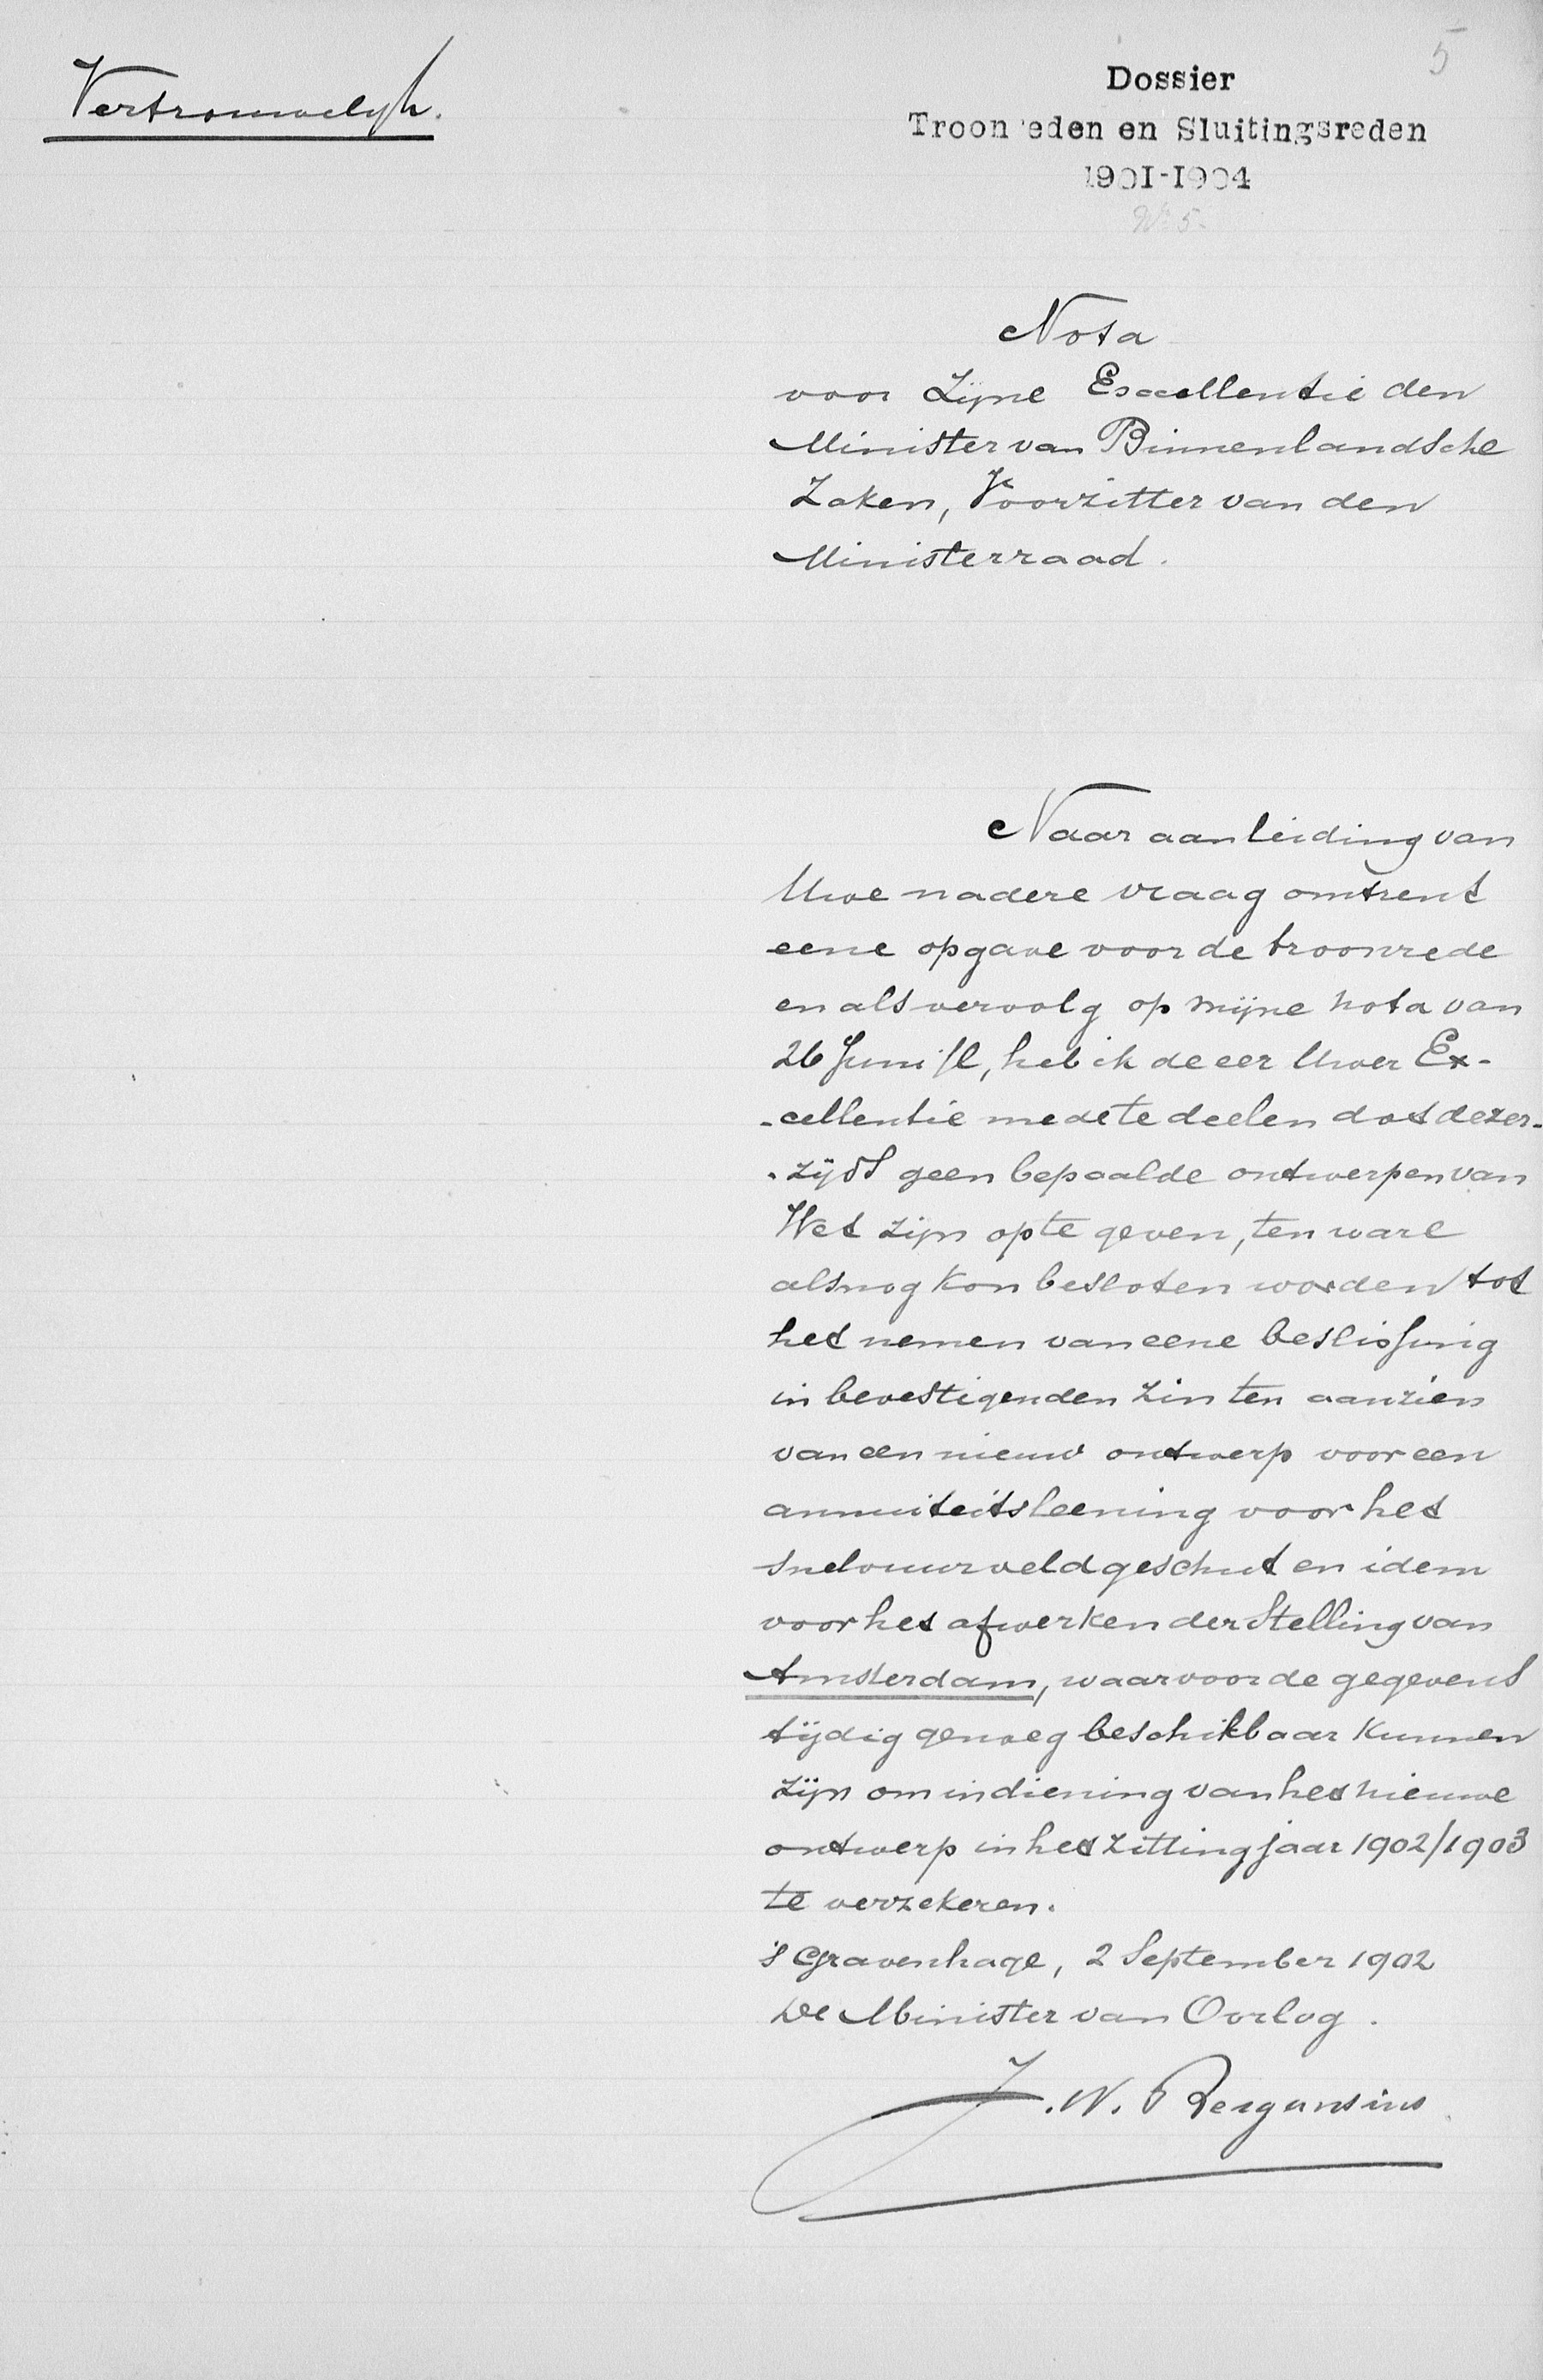 5
Vertrouwelijk.
Dossier
Troon eden en Sluitingsreden
1901-1904
No 5.
Nota
voor Zijne Excellentie den
Minister van Binnenlandsche
Zaken, Voorzitter van den
Ministerraad.
Naar aanleiding van
Uwe nadere vraag omtrent
eene opgave voor de troonrede
en als vervolg op mijne nota van
26 Juni jl, heb ik de eer Uwer Ex-
-cellentie mede te deelen dat dezer-
-zijds geen bepaalde ontwerpen van
Wet zijn op te geven, ten ware
alsnog kon besloten worden tot
het nemen van eene beslissing
in bevestigenden zin ten aanzien
van een nieuw ontwerp voor een
annuiteitsleening voor het
snelvuurveldgeschut en idem
voor het afwerken der Stelling van
Amsterdam, waarvoor de gegevens
tijdig genoeg beschikbaar kunnen
zijn om indiening van het nieuwe
ontwerp in het zittingjaar 1902/1903
te verzekeren.
's Gravenhage, 2 September 1902
De Minister van Oorlog.
J. W. Bergansius